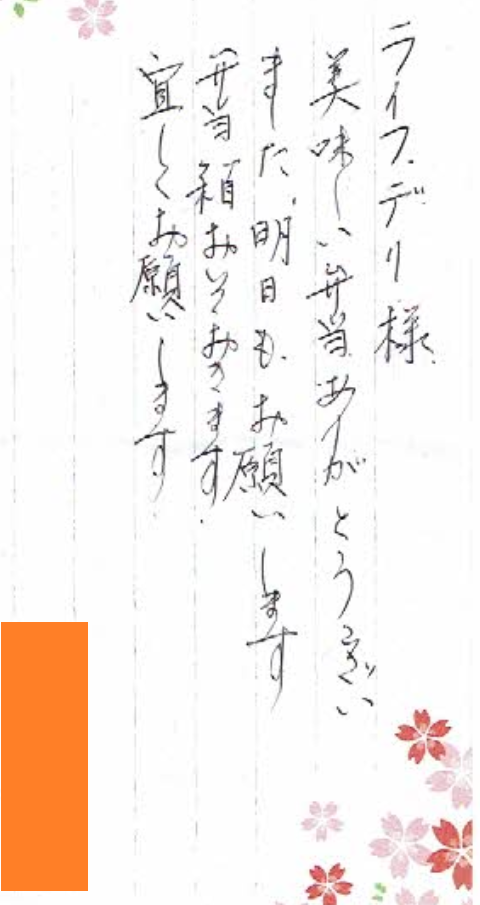 ライフデリ様
美味しい弁当ありがとうござい
ました、明日もお願いします
弁当箱おいておきます
宜しくお願いします